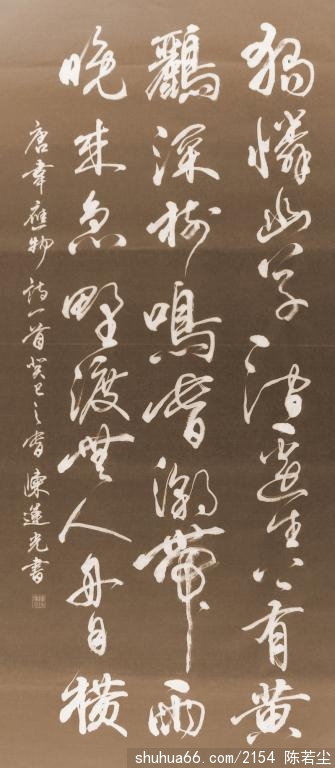 獨憐幽草澗邊生上有黃
鸝深樹鳴春潮帶雨
晚来急野渡無人舟自橫
唐韋應物詩一首癸巳之春陳蓮光書
shuhua66.com/2154 陈若尘